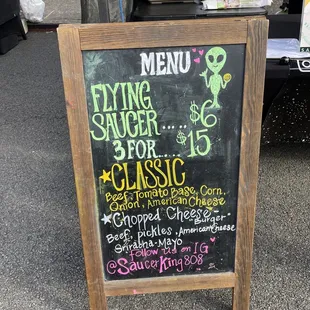 MENU
FLYING
SAUCER..... $6
3 FOR...... $15
★CLASSIC
Beef, Tomato Base, Corn,
Onion, American Cheese
★Chopped Cheese
-Burger-
Beef, pickles, American Cheese
Sriracha-Mayo
Follow us on IG
@SaucerKing808